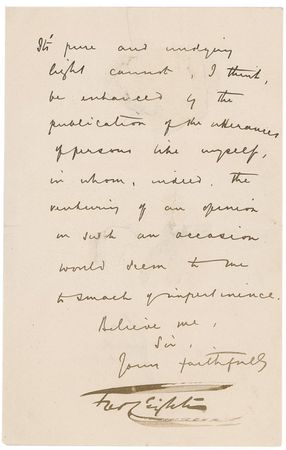 It's pure and undying
light cannot, I think,
be enhanced by the
publication of the utterances
of persons like myself,
in whom, indeed, the
venturing of an opinion
on such an occasion
would seem to me
to smack of impertinence.
Believe me,
Sir,
Yours faithfully
Fred Leighton